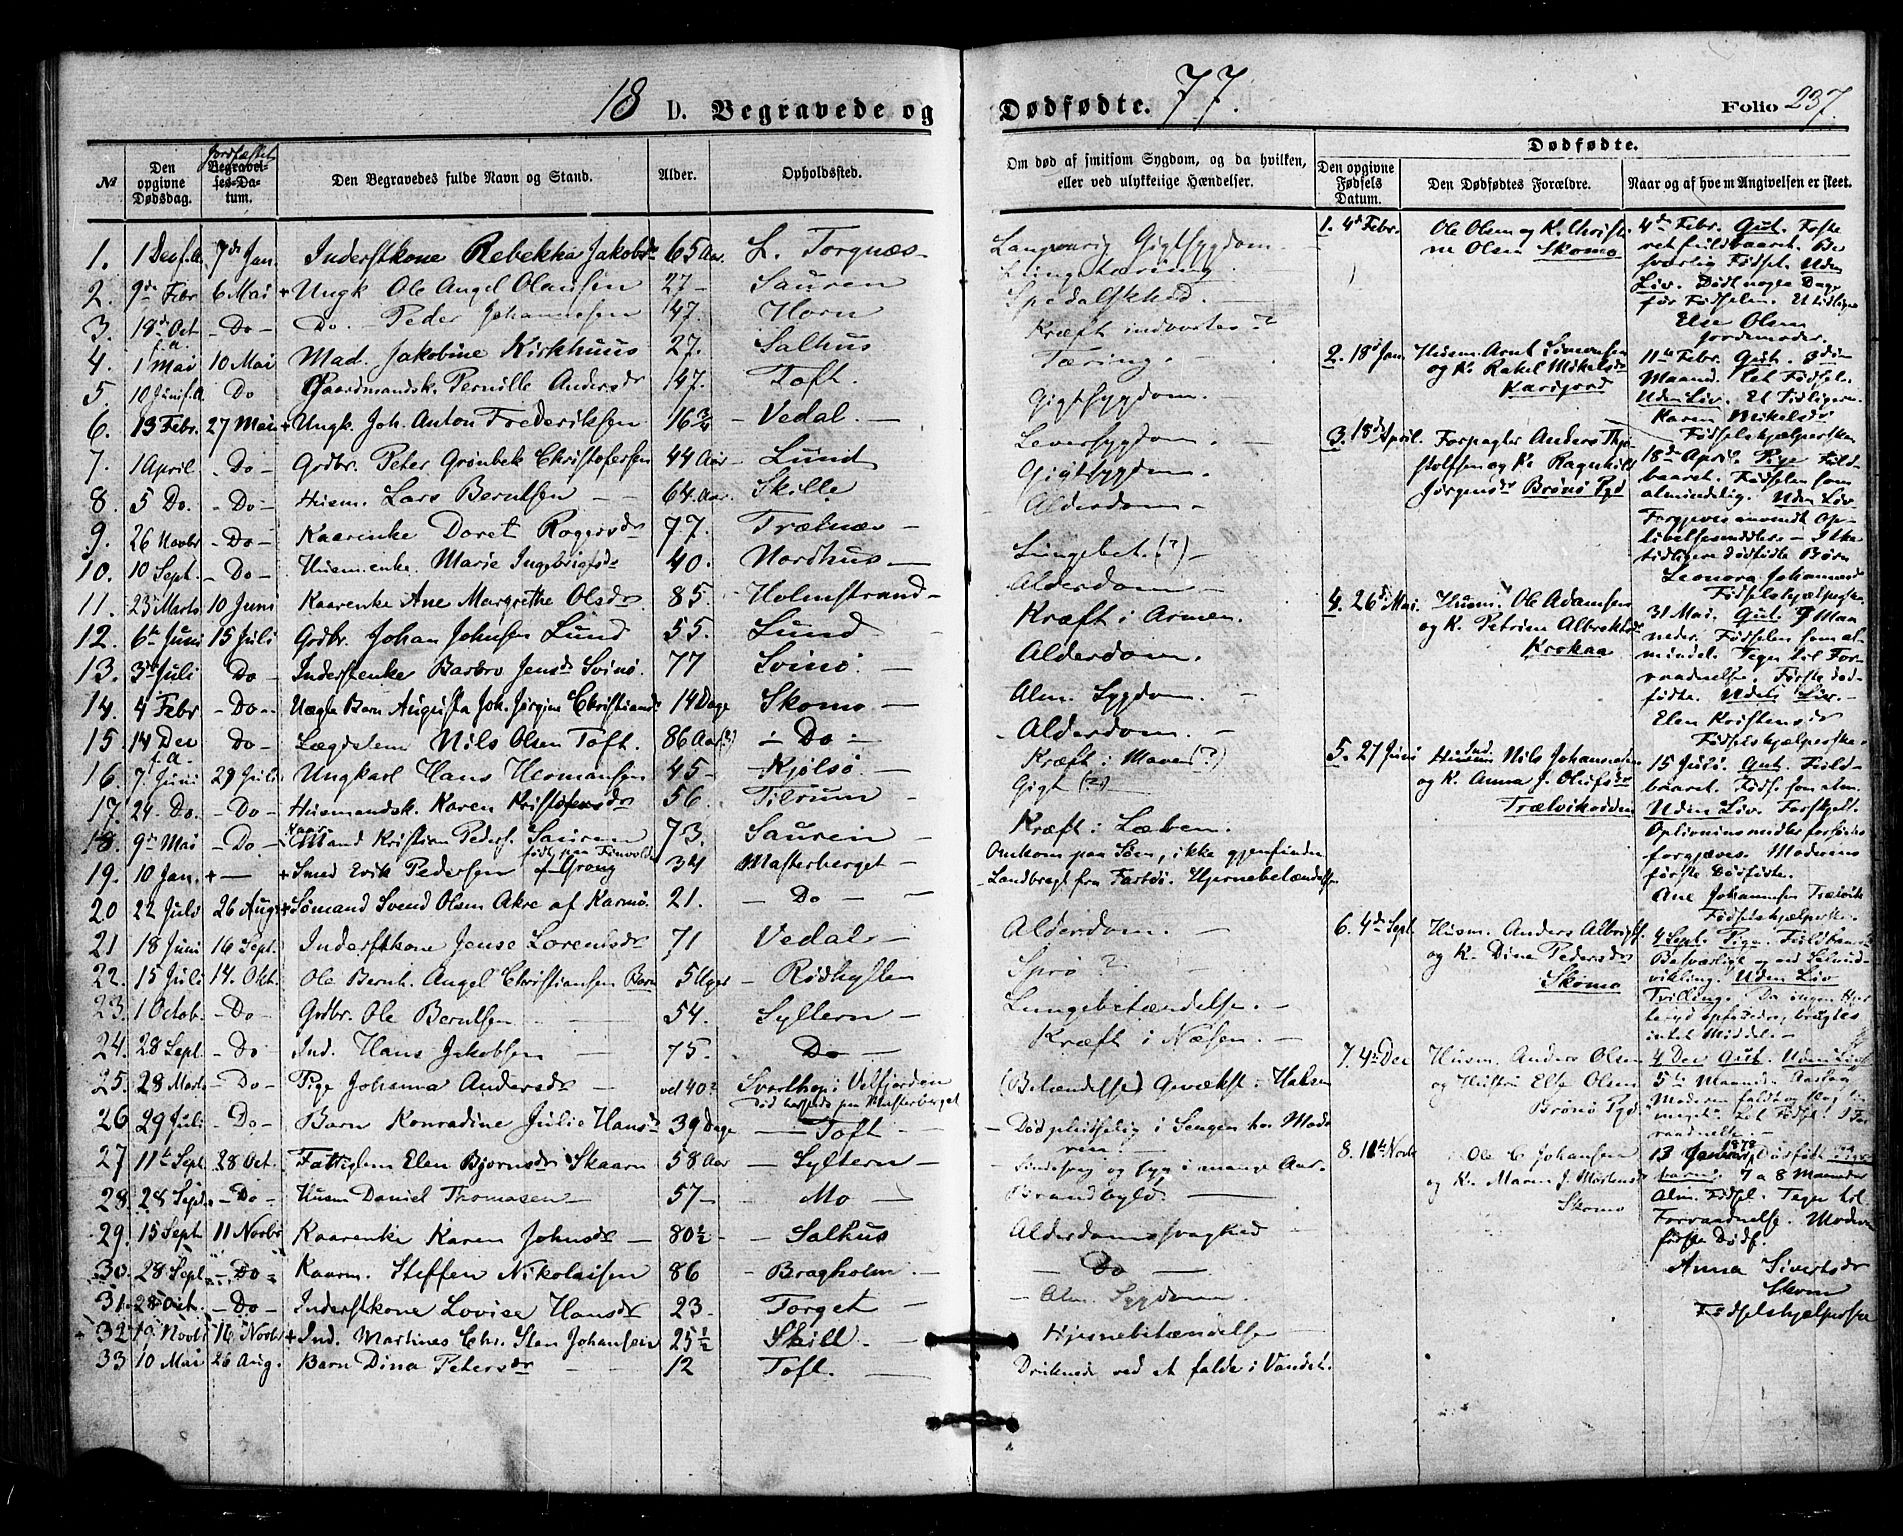 18 D. Begravede og Dødfødte. 77. Folio 237.
№
Den opgivne Dødsdag.
Jordfæstet
Begravelses-Datum.
Den Begravedes fulde Navn og Stand.
Alder.
Opholdsted.
Om død af smitsom Sygdom, og da hvilken, eller ved ulykkelige Hændelser.
Dødfødte.
Den opgivne Fødsels Datum.
Den Dødfødtes Forældre.
Naar og af hvem Angivelsen er skeet.
1. 1 Dec f.A. 7de Jan. Inderstkone Rebekka Jakobsdr 65 Aar L. Torgnæs - Langvarig Gigtsygdom
2. 9de Febr 6 Mai + Ungk Ole Angel Olaussen 27 - Sauren - Lungetæring
3. 18de Oct f.a. - Do - Do. - Peder Johannesen 47. Horn - Spedalskhed. -
4. 1 Mai 10 Mai Mad. Jakobine Kirkhuus 27. Salhus Kræft indvortes?
5. 10 Juni f.A Do Gaardmandsk. Pernille Andersdr 47. Toft. Tæring. -
6. 13 Febr. 27 Mai + Ungk. Joh. Anton Frederiksen 16 3/4 - Vedal - Gigtsygdom. -
7. 1 April. - Do - Grdbr. Peter Grønbek Christofersen 44 Aar - Lund Leversygdom. -
8. 5 Do. - Do - Husm. Lars Berntsen - - 64 Aar. - Skille Gigtsygdom. -
9. 26 Novbr - Do - Kaarenke Doret Rogersdr 77. Trælnæs - Alderdom. -
10. 10 Sept. - Do - Husm.enke. Marie Ingebrigtsdr 40. Nordhus - Lungebet. (?) -
11. 23 Marts 10 Juni Kaarenke Ane Margrethe Olsdr 85. Holmstrand - Alderdom -
12. 6te Juni 15 Juli Grdbr. Johan Johnsen Lund 55. - Lund - Kræft i Armen.
13. 3die Juli Do - Inderstenke Barbro Jensdr Svinø. 77 Svinø. - Alderdom.
14. 4 Febr - Do - Uægte Barn Augusta Joh. Jørgine Christiansdr 14 Dage Skomo - Alm. Sygdom. -
15 14 Dec f.a. Do - Lægdslem Nils Olsen Toft. 86 Aar (?) - Do - Alderdom. -
16. 7 Juni 29 Juli Ungkarl Hans Hermansen 45 - Kjølsø. - Kræft i Maven (?)
17. 24 Do. - Do - Husmandsk. Karen Kristofersdr 56. Tilrum - Gigt (?)
18. 9de Mai - Do - Kaarmand Kristian Peders. Sauren 73. Saurein - Kræft i Læben.
19. 10 Jan. + - + Smed Erik Pedersen født paa Finvold af Grong 34 Masterberget - Omkom paa Søen, ikke gjenfunden
20 22 Juli 26 Augs + Sømand Svend Olsen Akre af Karmø. 21. - Do - - Landbragt fra Fartøi. Hjernebetændelse
21 18 Juni 16 Sept. Inderstkone Jense Lorentsdr 71 Vedal - Alderdom. -
22. 15 Juli 14. Okt. Ole Bernh. Angel Christiansen Barn 5 Uger - Rødhylten Sprø? -
23. 1 Octob. - Do - Grdbr. Ole Berntsen - 54. - Syltern - Lungebetændelse. -
24. 28 Sept. - Do - Ind. Hans Jakobsen - 75. Do - Kræft i Næsen. -
25. 28 Marts - Do - Pige Johanna Andersdr ved 40? Svarthop i Velfjorden (Betændelse) Gevækst i Halsen
død herpads paa Masterberget
26 29 Juli - Do - Barn Konradine Julie Hansdr 39 Dage - Toft - - Død pludselig i Sengen hos Moderen. -
27 11te Sept 28 Oct. Fattiglem Elen Bjørnsdr Skaarn 58 Aar - Syltern - Sindssvag og syg i mange Aar.
28. 28 Sept. - Do - Husm Daniel Thomasen - 57 - Mo - Brandbyld. -
29. 15 Sept. 11 Novbr Kaarenke Karen Johnsdr - 80 1/2 - Salhus Alderdomssvaghed -
30. 28 Sept. - Do - Kaarm. Steffen Nikolaisen 86 - Bragholm - - Do -
31. 28 Oct. - Do - Inderstkone Lovise Hansdr 23. Torget - - Alm. Sygdom. -
+ 32 19 Novbr 16 Novbr + Ind. Martines Chr. Sten Johansen 25 1/2 - Skill. - Hjernebetændelse
33 10 Mai 26 Aug. Barn Dina Petersdr - 12 Toft. - Druknede ved at falde i Vandet.
1. 4de Febr. Ole Olsen og K. Christine Olsen Skomo
4de Febr. Gut. Fostret fuldbaaret. Besværlig Fødsel. Uden Liv. Dødt nogle Dage før Fødselen. Et tidligere
Else Olsen Jordmoder.
2. 18de Jan. Husm. Arnt Simonsen og K. Rakel Mikelsdr Karifjord
11te Febr. Gut. 8de Maaned. Let Fødsel. Uden Liv. Et Tidligere.
Karen Mikelsdr Fødselshjælperske
3. 18de April. Forpagter Anders Thjostolfsen og K. Ragnhild Jørgensdr Brønø Pgd
18de April. Pige Fuldbaaret. Fødselen som almindelig. Uden Liv. Forgjeves anvendt Oplivelsesmidler. - Ikke tidligere dødfødte Børn
Leonora Johannesdr Fødselshjælperske
4. 26de Mai. Husm. Ole Adamsen og K. Petrine Albrektsdr Krokaa
31 Mai. Gut 9 Maaneder. Fødselen som almindel. Tegn til Forraadnelse. Første dødfødte. Uden Liv. -
Elen Kristensdr Fødselshjælperske.
5. 27 Juni Ind. Nils Johannesen og K. Anna J. Olufsdr Trælvikodden
15 Juli. Gut. Fuldbaaret. Føds. som alm. Uden Liv. Forskjell. Oplivningsmidler forsøgtes forgjæves. Moderens første Dødfødte.
Ane Johannesen Trælvik Fødselshjælperske.
6. 4de Sept. Husm. Anders Albrigts. og K. Dine Pedersdr Skomo
4 Sept. Pige. Fuldbaaret. Besværligt og ved Selvudvikling. Uden Liv. Tvilling. Da ingen Hjertelyd opstod, brugtes intet Middel. -
7. 4de Dec Husm. Anders Olsen og Hustru Else Olsen Brønø Pgd
4 Dec Gut. Uden Liv. 5te Maaned. Aarsag Moderen faldt og slog sig meget. Let Fødsel. I Forraadnelse. -
8. 11te Novbr Ole C Johansen og K. Maren J. Mortensdr Skomo
13 Januar 1878 Dødfødt Pigebarn. 7 a 8 Maaneder. Alm. Fødsel. Tegn til Forraadnelse. Moderens første Dødf.
Anna Sivertsdr
Skomo
Fødselshjælperske